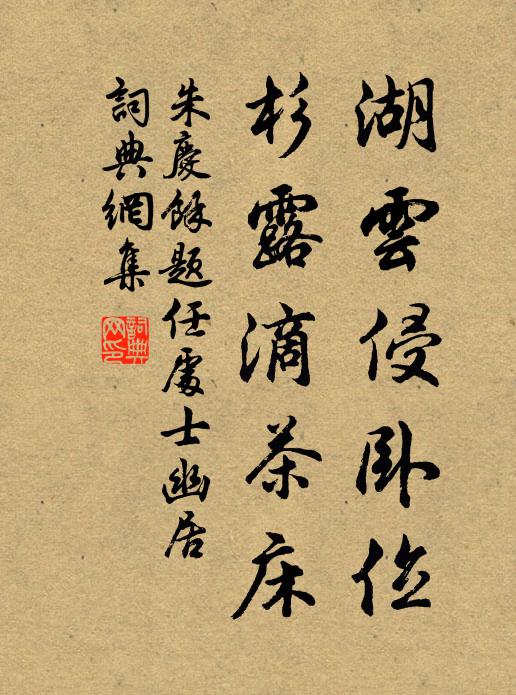 湖雲侵卧位
杉露滴茶床
朱慶餘題任處士幽居
詞典網集
詞典網印